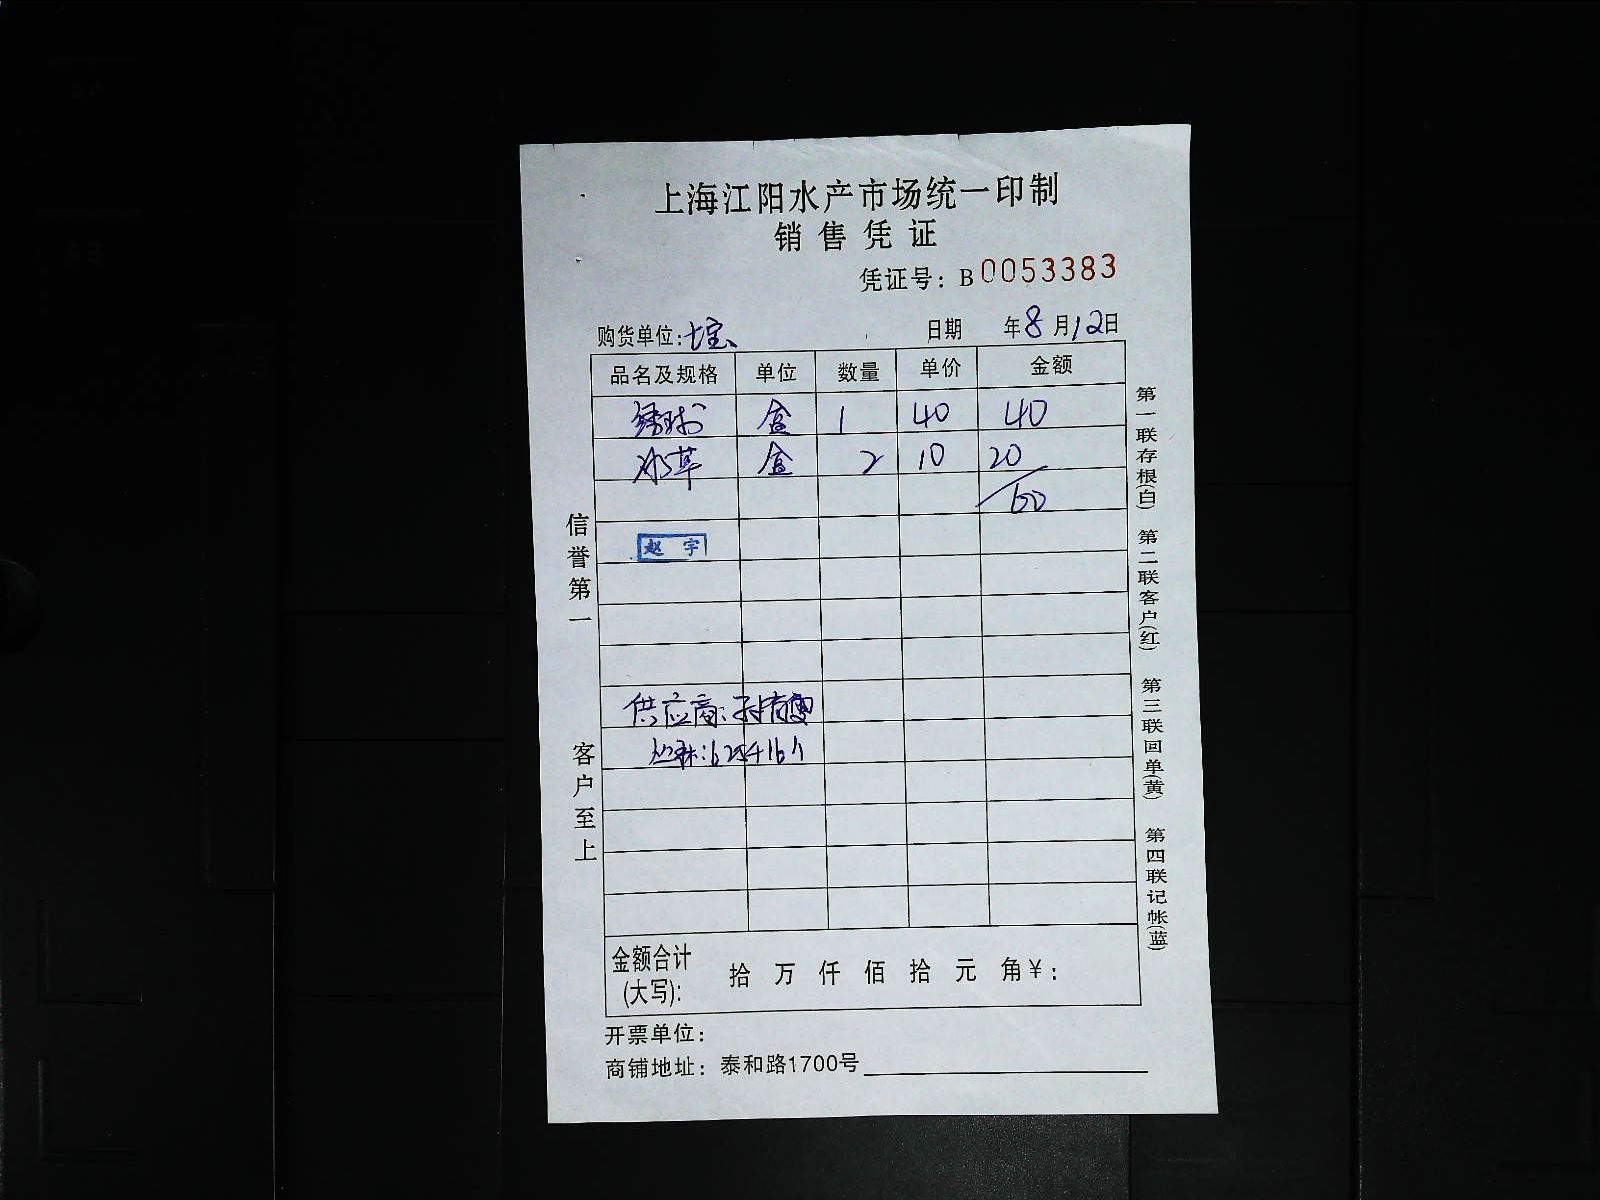 上海江阳水产市场统一印制
销售凭证
凭证号：B0053383
购货单位：七宝 日期 年8月12日
品名及规格 单位 数量 单价 金额
绣球 盒 1 40 40
冰草 盒 2 10 20
60
赵 宇
供应商：
6254161
金额合计(大写)： 拾 万 仟 佰 拾 元 角￥：
开票单位：
商铺地址：泰和路1700号
信誉第一
客户至上
第一联存根(白)
第二联客户(红)
第三联回单(黄)
第四联记帐(蓝)